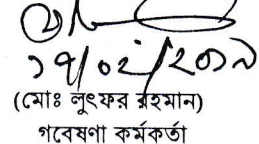 ১৭/০২/২০১৯
(মোঃ লুৎফর রহমান)
গবেষণা কর্মকর্তা